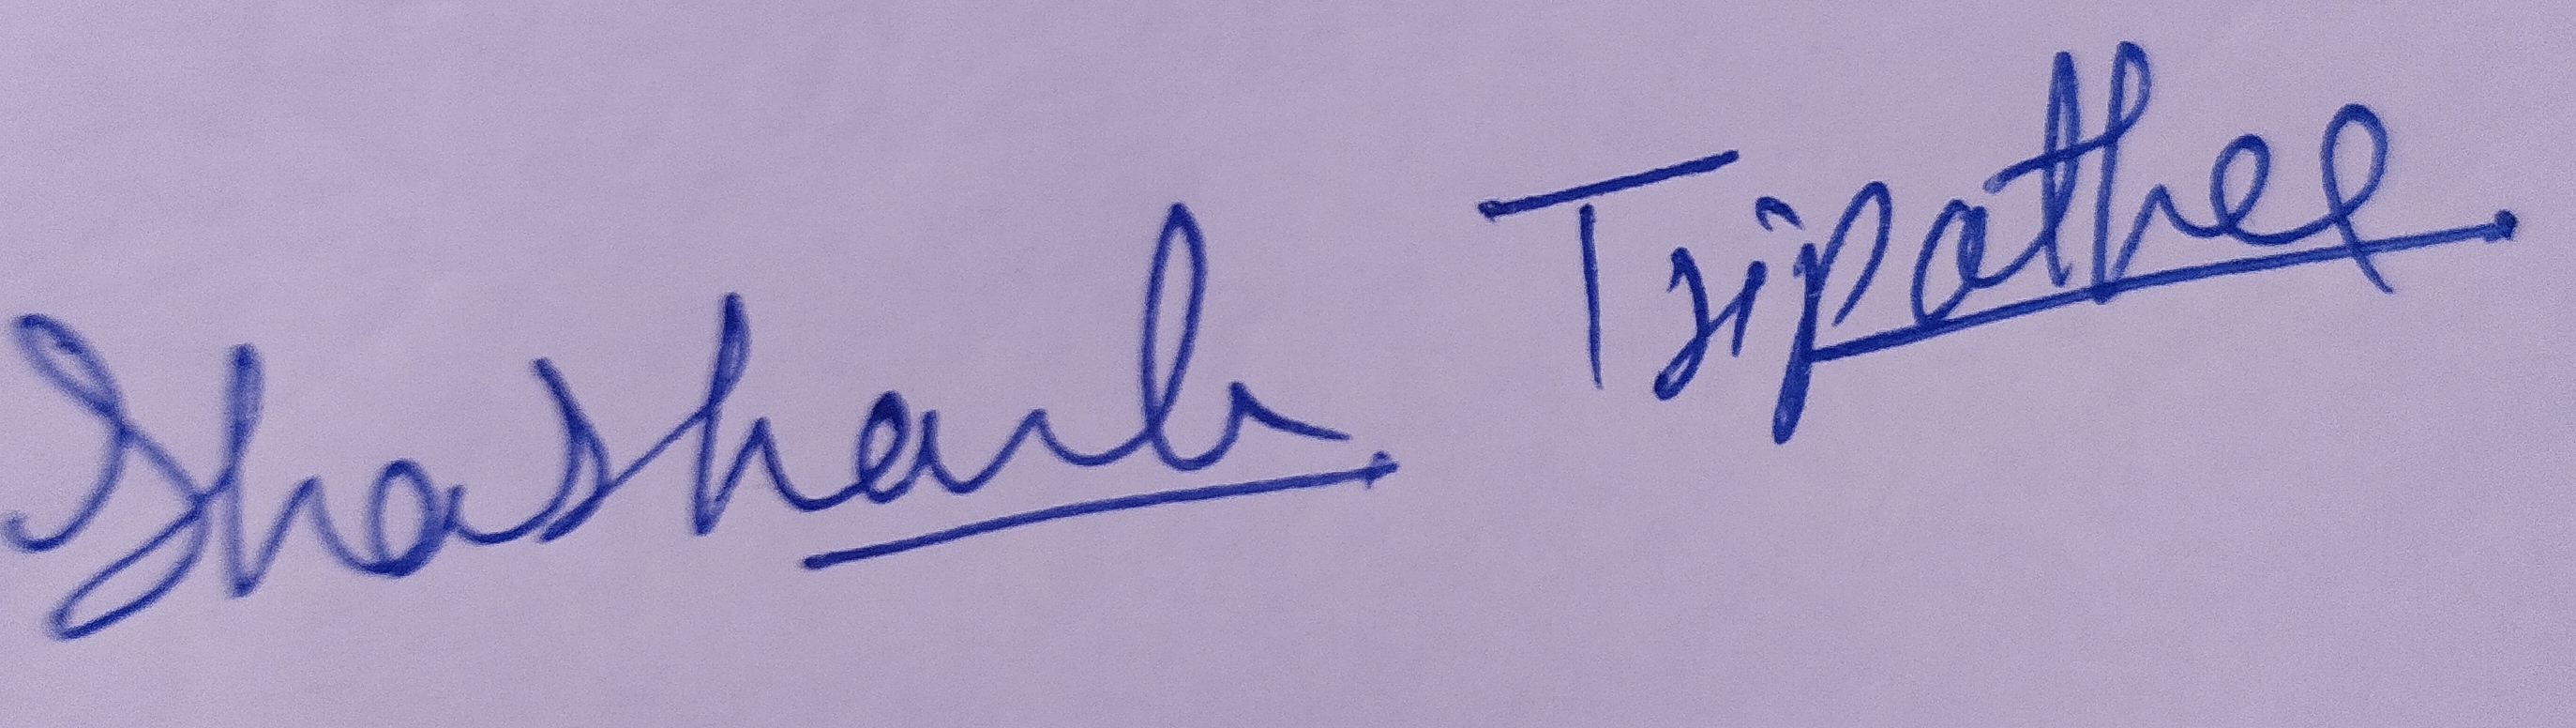 Shashank Tripathee